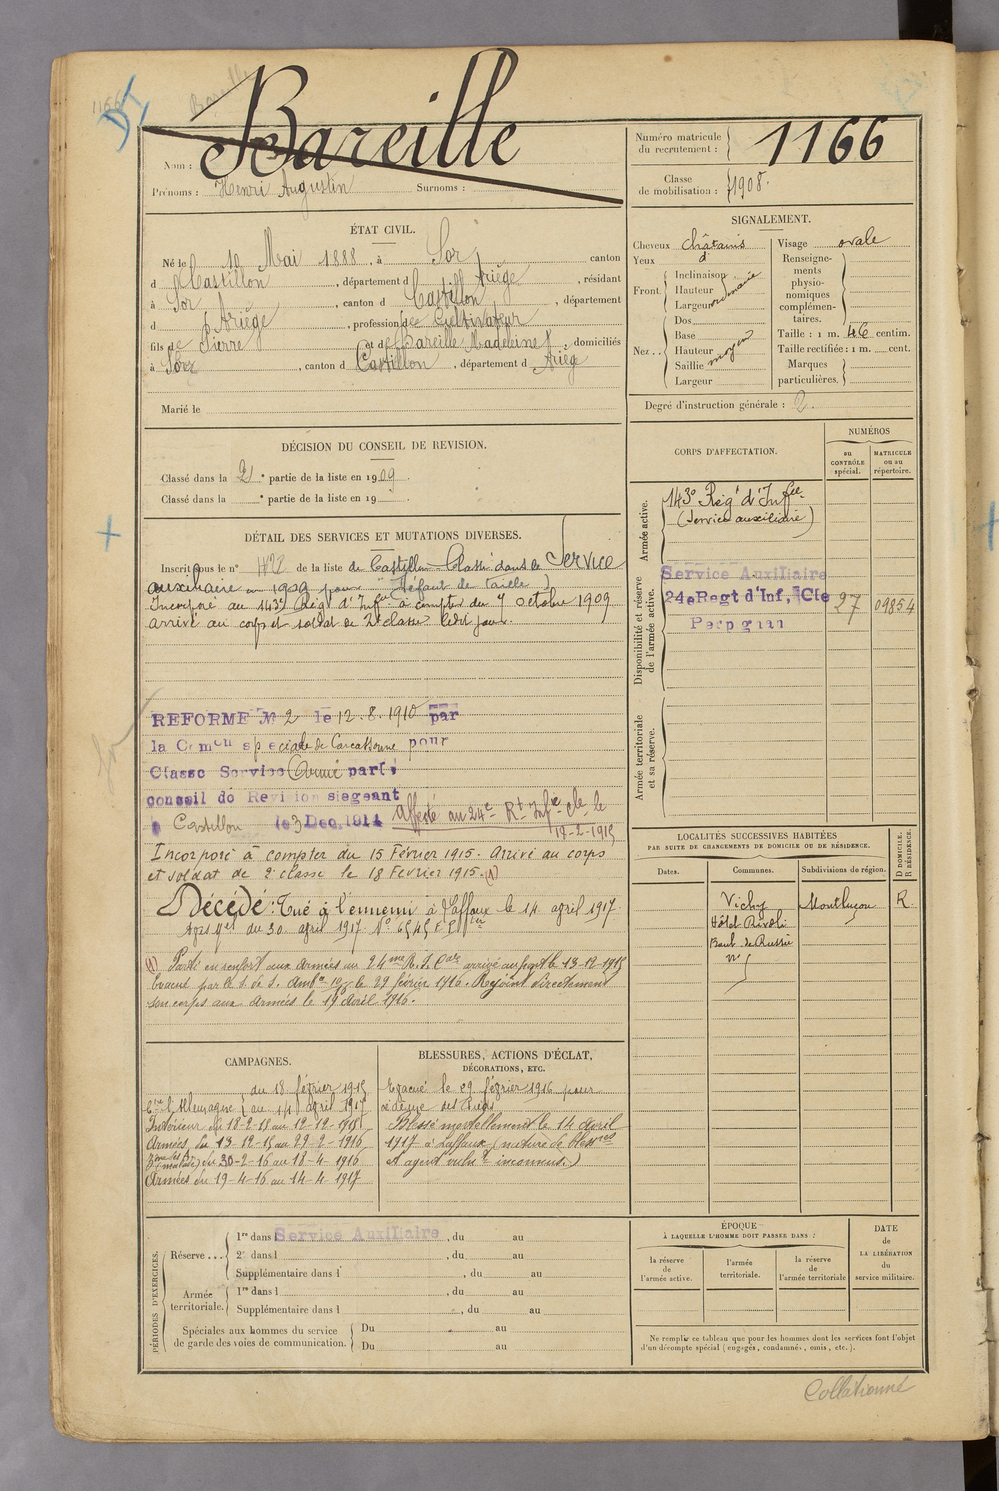 1166
Bareille
Nom :
Prénoms : Henri Augustin Surnoms :
Numéro matricule
du recrutement : 1166
Classe
de mobilisation : 1908.
ÉTAT CIVIL.
Né le 10 Mai 1888, à Sor, canton
d Castillon, département d Ariège, résidant
à Sor, canton d Castillon, département
d Ariège, profession de Cultivateur
fils de Pierre et de Bareille Madeleine, domiciliés
à Sor, canton d Castillon, département d Ariège
Marié le
SIGNALEMENT.
Cheveux châtains
Yeux d°
Front. Inclinaison
Hauteur
Largeur
ordinaire
Nez.. Dos
Base
Hauteur
Saillie
Largeur
moyen
Visage ovale
Renseigne-
ments
physio-
nomiques
complémen-
taires.
Taille : 1 m. 46 centim.
Taille rectifiée : 1 m. cent.
Marques
particulières.
Degré d'instruction générale : 2.
DÉCISION DU CONSEIL DE REVISION.
Classé dans la 2e partie de la liste en 1909.
Classé dans la e partie de la liste en 19
DÉTAIL DES SERVICES ET MUTATIONS DIVERSES.
Inscrit sous le n° de la liste de Castillon Classé dans le Service
auxiliaire en 1909 pour "Défaut de taille"
Incorporé au 143e Régt d'Infie à compter du 7 octobre 1909
arrivé au corps et soldat de 2e classe ledit jour.
REFORME N° 2 le 12.8.1910 par
la Comon spéciale de Carcassonne pour
Classé Service Armé par le
conseil de Revision siegeant
à Castillon le 3 Dec. 1914 Affecté au 24e Rt Infie Cle le
18-2-1915
Incorporé à compter du 15 Février 1915. Arrivé au corps
et soldat de 2e classe le 18 Février 1915. (1)
Décédé : Tué à l'ennemi à Laffaux le 14 april 1917
du 30 april 1917
(1) Parti en renfort aux Armées au 24me R.I. Car arrivé au front le 13-12-1915
Evacué par le S. de S. le 29 février 1916. Rejoint directement
son corps aux Armées le 19 avril 1916.
CORPS D'AFFECTATION.
NUMÉROS
au
CONTRÔLE
spécial.
MATRICULE
ou au
répertoire.
Armée active.
143e Régt d'Infie
(Service auxiliaire)
Disponibilité et réserve
de l'armée active.
Service Auxiliaire
24e Regt d'Inf, Cle 27 09854
Perpignan
Armée territoriale
et sa réserve.
LOCALITÉS SUCCESSIVES HABITÉES
PAR SUITE DE CHANGEMENTS DE DOMICILE OU DE RÉSIDENCE.
D DOMICILE.
R RÉSIDENCE.
Dates. Communes. Subdivisions de région.
Vichy Montluçon R.
Hôtel Rivoli
Boul. de Russie
CAMPAGNES.
du 18 février 1915
Cre l'Allemagne au 14 april 1917
Intérieur du 18-2-15 au 12-12-1915
Armées du 13-12-15 au 29-2-1916
(malade) du 30-2-16 au 18-4-1916
Armées du 19-4-16 au 14-4-1917
BLESSURES, ACTIONS D'ÉCLAT,
DÉCORATIONS, ETC.
Evacué le 29 février 1916 pour
œdème des Pieds
Blessé mortellement le 14 avril
1917 à Laffaux (nature de bless
et agent vuln inconnus.)
PÉRIODES D'EXERCICES.
Réserve... 1re dans l Service Auxiliaire, du au
2e dans l, du au
Supplémentaire dans l, du au
Armée
territoriale. 1re dans l, du au
Supplémentaire dans l, du au
Spéciales aux hommes du service
de garde des voies de communication. Du au
Du au
ÉPOQUE
À LAQUELLE L'HOMME DOIT PASSER DANS :
la réserve
de
l'armée active.
l'armée
territoriale.
la réserve
de
l'armée territoriale
DATE
de
LA LIBÉRATION
du
service militaire.
Ne remplir ce tableau que pour les hommes dont les services font l'objet
d'un décompte spécial (engagés, condamnés, omis, etc.).
Collationné